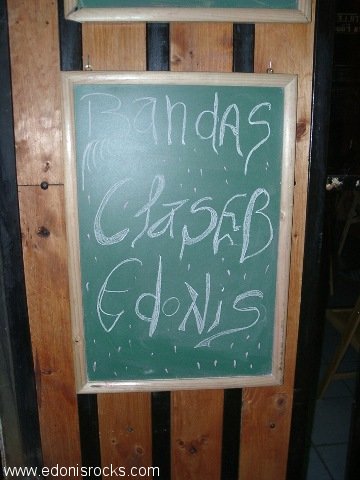 Bandas
Clase B
Edonis
www.edonisrocks.com